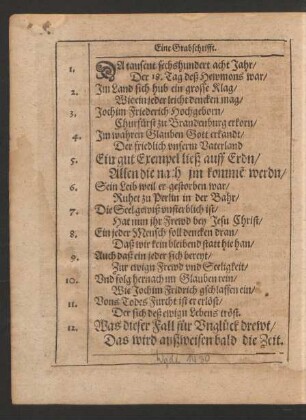 Eine Grabschrifft.
1. DA tausent sechshundert acht Jahr/
Der 18. Tag deß Hewmons war/
2. Im Land sich hub ein grosse Klag/
Wie ein jeder leicht dencken mag/
3. Jochim Friederich Hochgeborn/
Churfürst zu Brandenburg erkorn/
4. Im wahren Glauben Gott erkandt/
Der friedlich vnserm Vaterland
5. Ein gut Exempel ließ auff Erdn/
Allen die nach jm kommē werdn/
6. Sein Leib weil er gestorben war/
Ruhet zu Perlin in der Bahr/
7. Die Seel gwiß vnsterblich ist/
Hat nun ihr Frewd bey Jesu Christ/
8. Ein jeder Mensch soll dencken dran/
Daß wir kein bleibend statt hie han/
9. Auch daß ein jeder sich bereyt/
Zur ewign Frewd vnd Seeligkeit/
10. Vnd folg hernach im Glauben rein/
Wie Jochim Fridrich gschlaffen ein/
11. Vons Todes Furcht ist er erlöst/
Der sich deß ewign Lebens tröst.
12. Was dieser Fall für Vnglück drewt/
Das wird außweisen bald die Zeit.